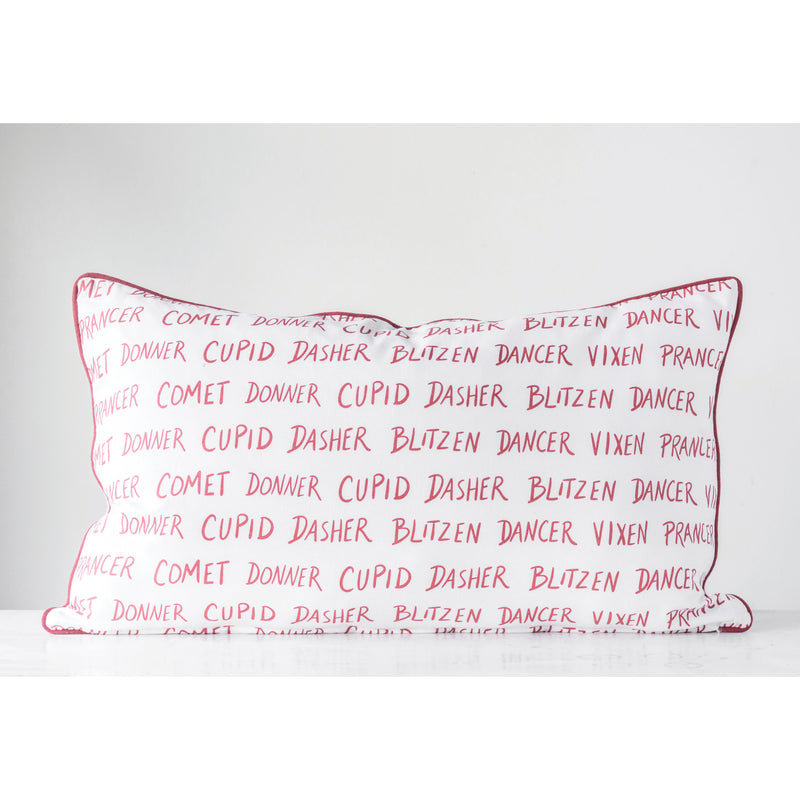 PRANCER
PRANCER COMET DONNER CUPID DASHER BLITZEN DANCER VIXEN
COMET DONNER CUPID DASHER BLITZEN DANCER VIXEN PRANCER
PRANCER COMET DONNER CUPID DASHER BLITZEN DANCER
COMET DONNER CUPID DASHER BLITZEN DANCER VIXEN PRANCER
COMET DONNER CUPID DASHER BLITZEN DANCER
COMET DONNER CUPID DASHER BLITZEN DANCER VIXEN PRANCER
PRANCER COMET DONNER CUPID DASHER BLITZEN DANCER
DONNER CUPID DASHER BLITZEN DANCER VIXEN PRANCER
COMET DONNER CUPID DASHER BLITZEN DANCER